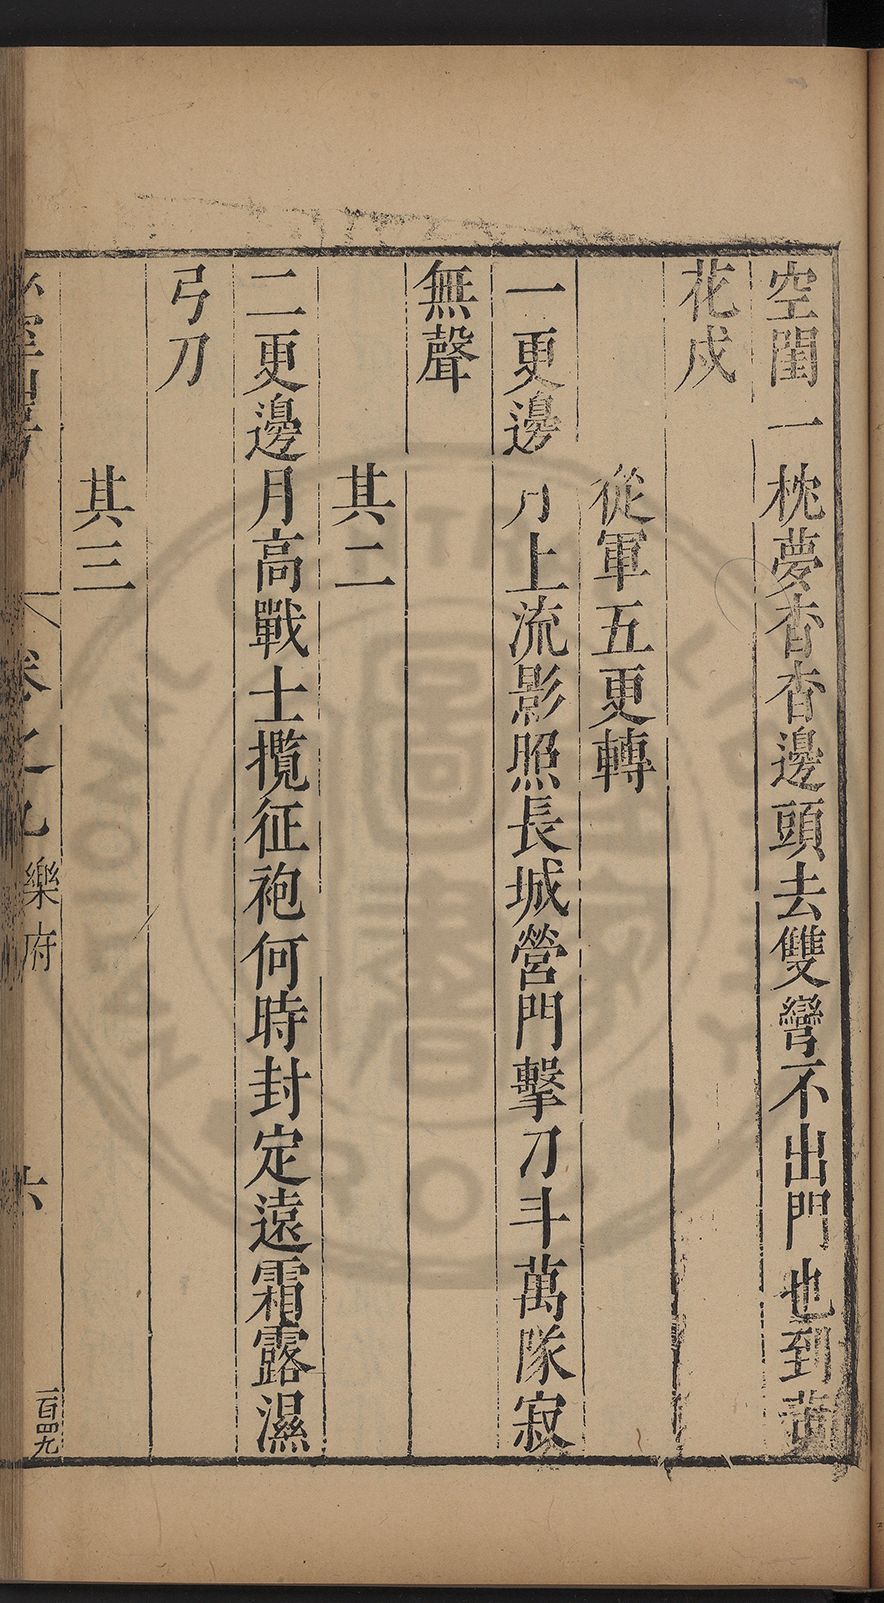 空閨一枕夢杳杳邊頭去雙彎不出門也到黃
花戍
從軍五更轉
一更邊月上流影照長城營門擊刀斗萬隊寂
無聲
其二
二更邊月高戰士攬征袍何時封定遠霜露濕
弓刀
其三
卷之九 樂府 六
一百四九